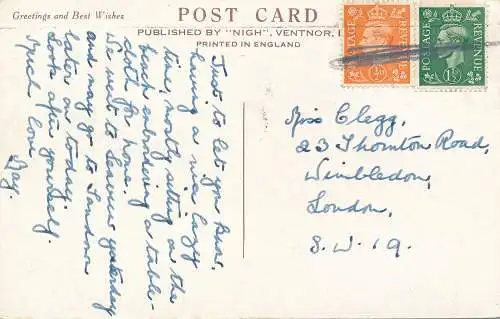 Greetings and Best Wishes
POST CARD
PUBLISHED BY "NIGH", VENTNOR, I
PRINTED IN ENGLAND
POSTAGE REVENUE
½D
POSTAGE REVENUE
1½D
Just to let you know
having a nice lazy
time, mostly sitting on the
beach embroidering a table-
cloth for home.
I went to Seaview yesterday
and may go to Sandown
later on today.
Look after yourself.
Much love
Miss Clegg,
23 Thornton Road,
Wimbledon,
London,
S.W.19.